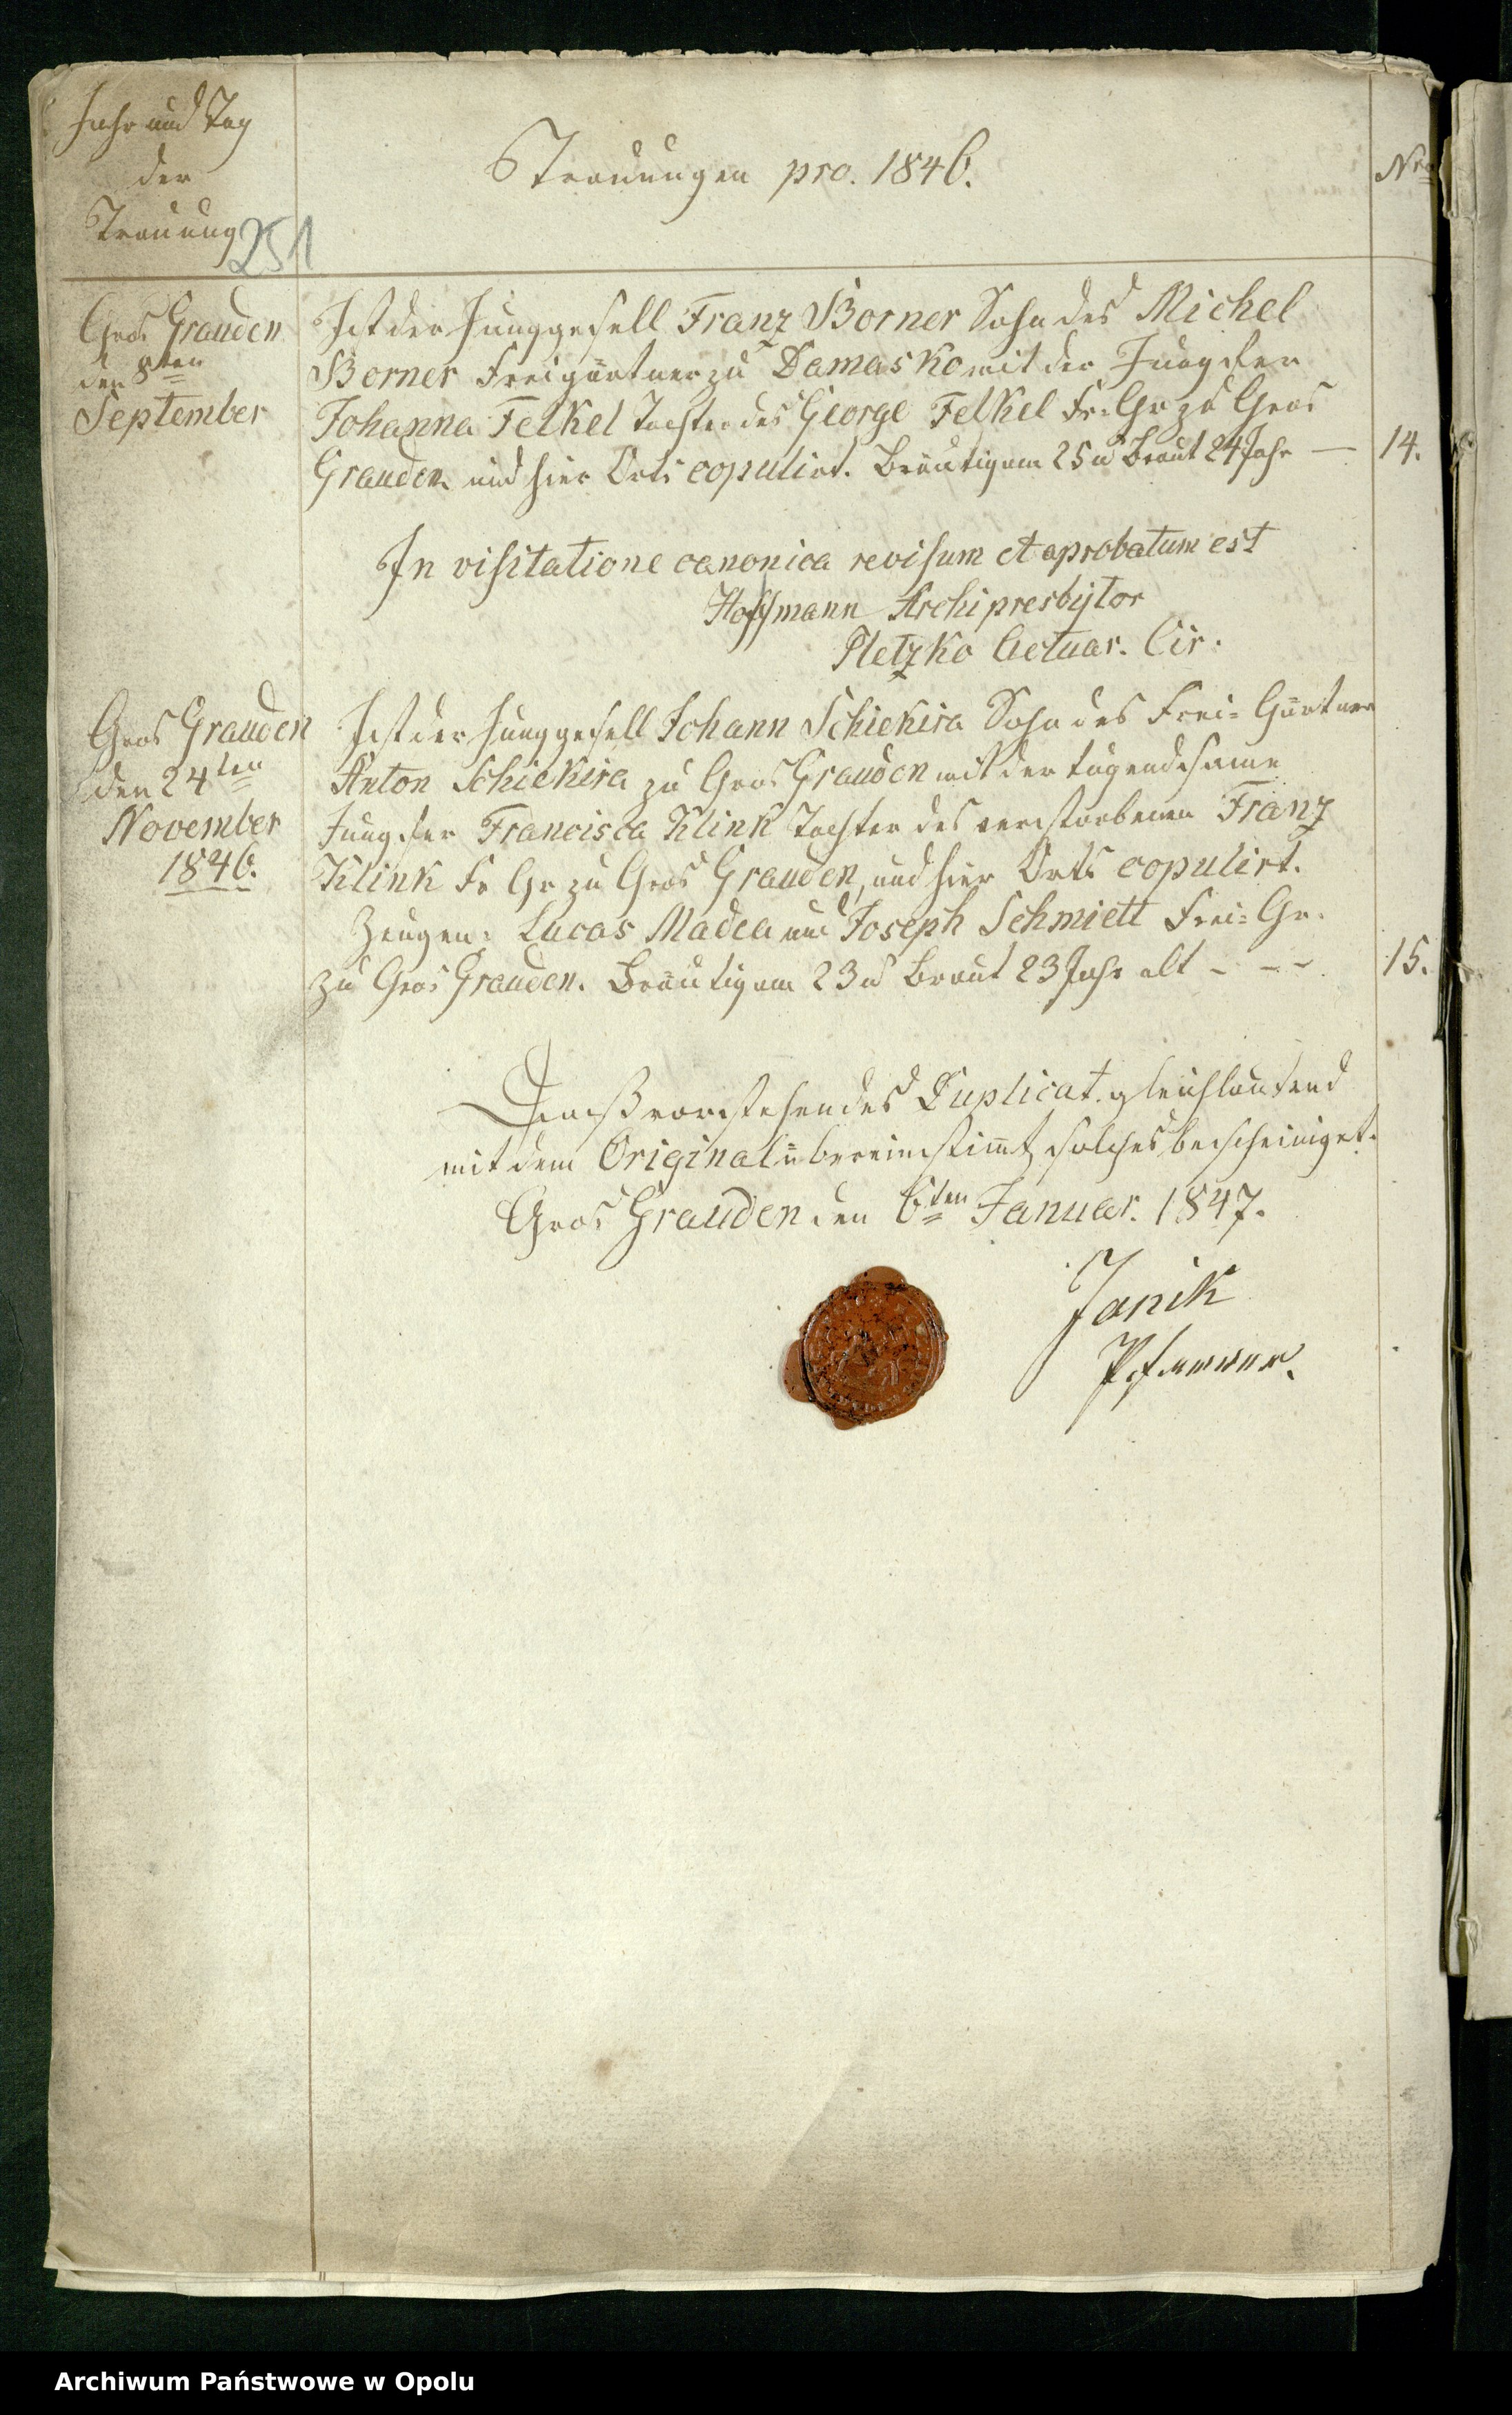 Jahr und Tag
der
Trauung
251
Trauungen pro. 1846.
Nro
Gros Grauden
den 8ten
September
Ist der Junggesell Franz Borner Sohn des Michel
Borner Freigärtner zu Damasko mit der Jungfer
Johanna Felkel Tochter des George Felkel Fr: Gr zu Gros
Grauden und hier Orts copulirt. Bräutigam 25 u Braut 24 Jahr — 14.
In visitatione canonica revisum et aprobatum est
Hoffmann Archipresbyter
Pletzko Actuar. Cir.
Gros Grauden
den 24ten
November
1846.
Ist der Junggesell Johann Schiekira Sohn des Frei= Gärtner
Anton Schiekira zu Gros Grauden mit der tugendsame
Jungfer Francisca Klink Tochter des verstorbenen Franz
Klink Fr Gr zu Gros Grauden, und hier Orts copulirt.
Zeugen: Lucas Madea und Joseph Schmiett Frei= Gr.
zu Gros Grauden. Bräutigam 23 u Braut 23 Jahr alt - - - 15.
Daß vorstehendes Duplicat gleichlautend
mit dem Original übereinstimt, solches bescheiniget.
Gros Grauden den 6ten Januar. 1847.
Janik
Pfarrer.
Archiwum Państwowe w Opolu